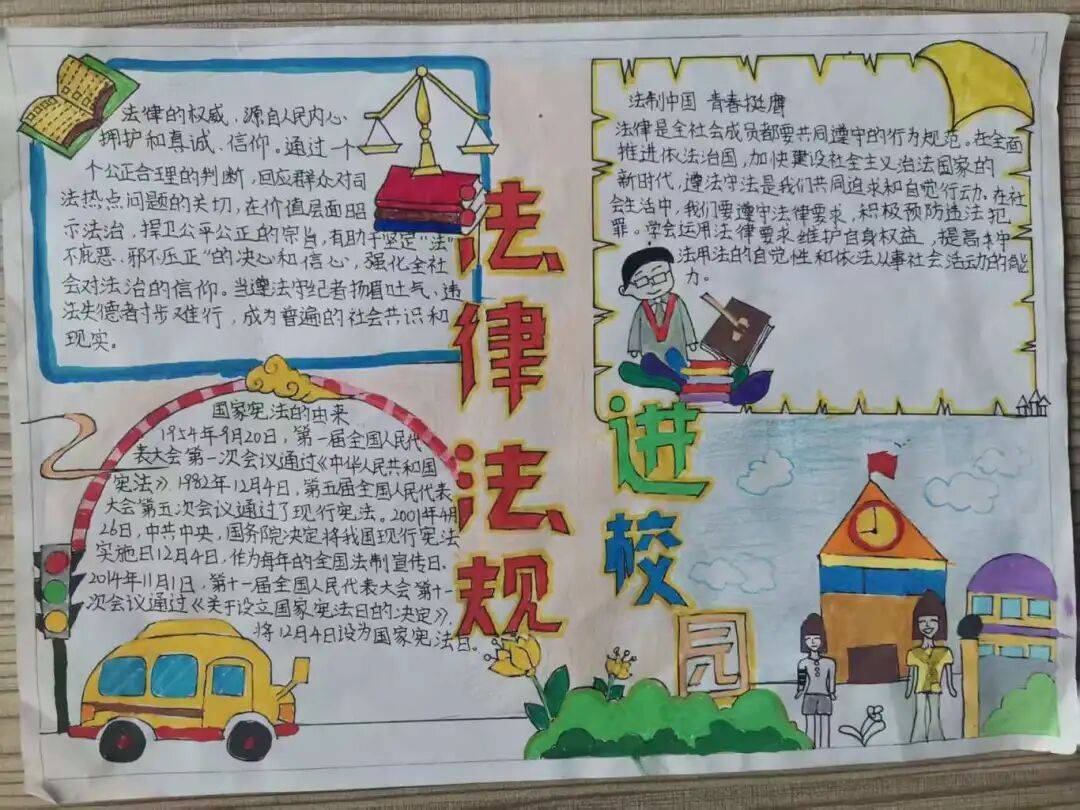 法律法规
进校园
法律的权威，源自人民内心
拥护和真诚信仰。通过一个
个公正合理的判断，回应群众对司
法热点问题的关切，在价值层面昭
示法治，捍卫公平公正的宗旨，有助于坚定“法
不庇恶、邪不压正”的决心和信心，强化全社
会对法治的信仰。当遵法守纪者扬眉吐气，违
法失德者寸步难行，成为普遍的社会共识和
现实。
国家宪法的由来
1954年9月20日，第一届全国人民代
表大会第一次会议通过《中华人民共和国
宪法》，1982年12月4日，第五届全国人民代表
大会第五次会议通过了现行宪法。2001年4月
26日，中共中央，国务院决定将我国现行宪法
实施日12月4日，作为每年的全国法制宣传日，
2014年11月1日，第十一届全国人民代表大会第十一
次会议通过《关于设立国家宪法日的决定》，
将12月4日设为国家宪法日。
法制中国 青春挺膺
法律是全社会成员都要共同遵守的行为规范。在全面
推进依法治国，加快建设社会主义治法国家的
新时代，遵法守法是我们共同追求和自觉行动。在社
会生活中，我们要遵守法律要求，积极预防违法犯
罪。学会运用法律要求维护自身权益，提高
法用法的自觉性和依法从事社会活动的能
力。